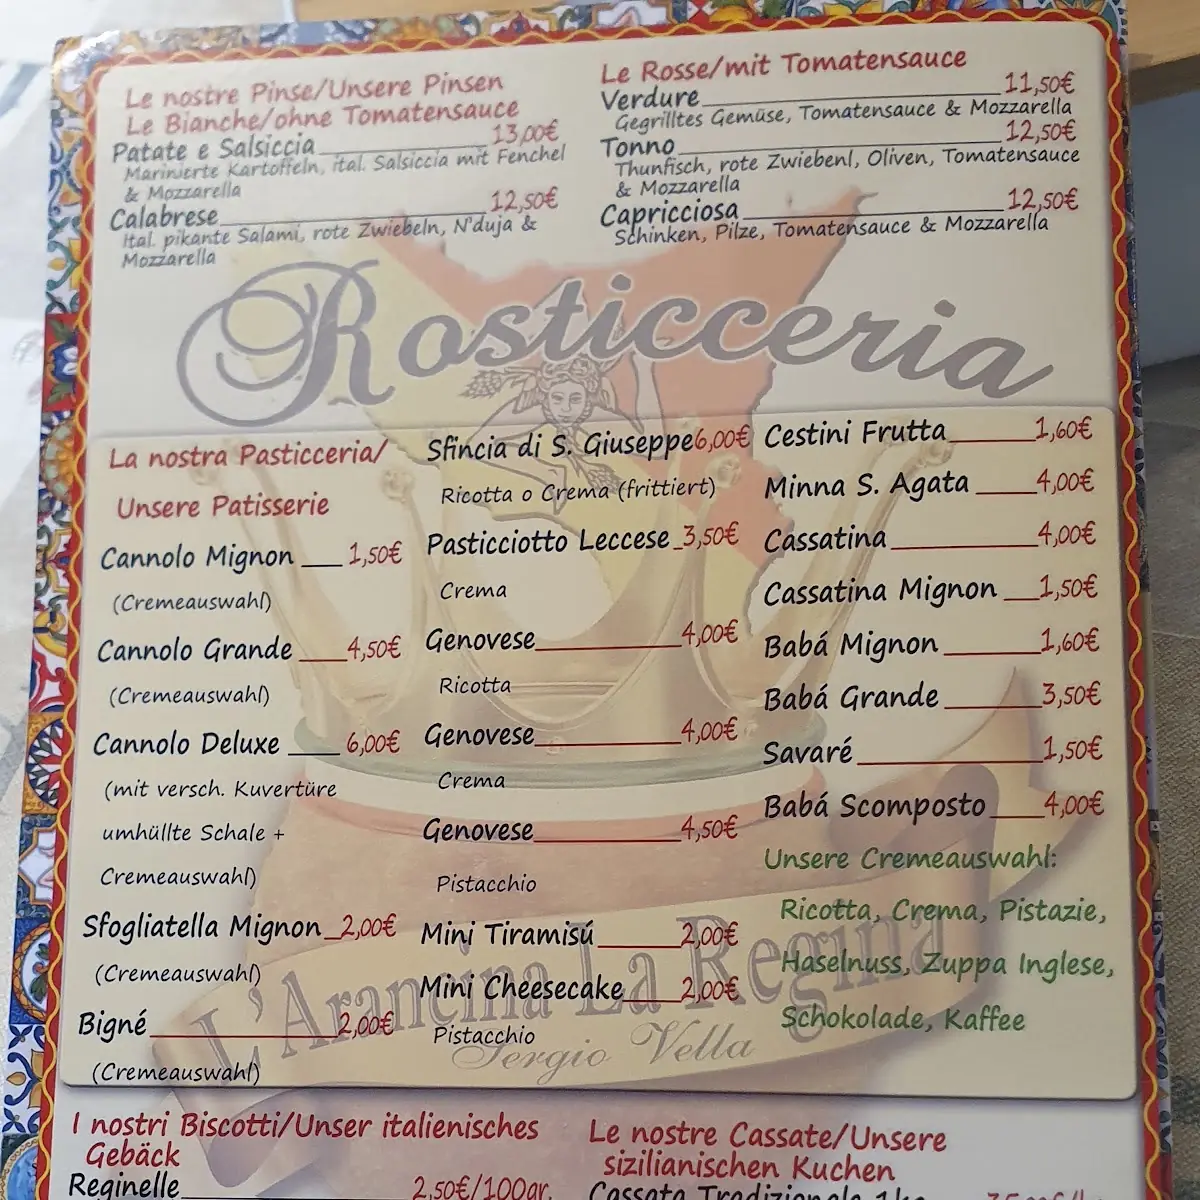 Le nostre Pinse/Unsere Pinsen
Le Bianche/ohne Tomatensauce
Patate e Salsiccia 13,00€
Marinierte Kartoffeln, ital. Salsiccia mit Fenchel
& Mozzarella
Calabrese 12,50€
Ital. pikante Salami, rote Zwiebeln, N'duja &
Mozzarella
Le Rosse/mit Tomatensauce
Verdure 11,50€
Gegrilltes Gemüse, Tomatensauce & Mozzarella
Tonno 12,50€
Thunfisch, rote Zwiebenl, Oliven, Tomatensauce
& Mozzarella
Capricciosa 12,50€
Schinken, Pilze, Tomatensauce & Mozzarella
Rosticceria
La nostra Pasticceria/
Unsere Patisserie
Cannolo Mignon 1,50€
(Cremeauswahl)
Cannolo Grande 4,50€
(Cremeauswahl)
Cannolo Deluxe 6,00€
(mit versch. Kuvertüre
umhüllte Schale +
Cremeauswahl)
Sfogliatella Mignon 2,00€
(Cremeauswahl)
Bigné 2,00€
(Cremeauswahl)
Sfincia di S. Giuseppe 6,00€
Ricotta o Crema (frittiert)
Pasticciotto Leccese 3,50€
Crema
Genovese 4,00€
Ricotta
Genovese 4,00€
Crema
Genovese 4,50€
Pistacchio
Mini Tiramisú 2,00€
Mini Cheesecake 2,00€
Pistacchio
Cestini Frutta 1,60€
Minna S. Agata 4,00€
Cassatina 4,00€
Cassatina Mignon 1,50€
Babá Mignon 1,60€
Babá Grande 3,50€
Savaré 1,50€
Babá Scomposto 4,00€
Unsere Cremeauswahl:
Ricotta, Crema, Pistazie,
Haselnuss, Zuppa Inglese,
Schokolade, Kaffee
L'Arancina La Regina
Sergio Vella
I nostri Biscotti/Unser italienisches
Gebäck
Reginelle 2,50€/100gr.
Le nostre Cassate/Unsere
sizilianischen Kuchen
Cassata Tradizionale 1kg